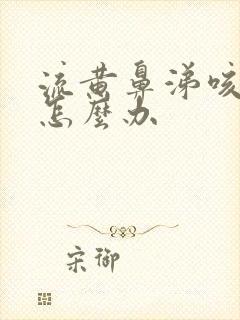 流黄鼻涕咳
怎麼办
宋御